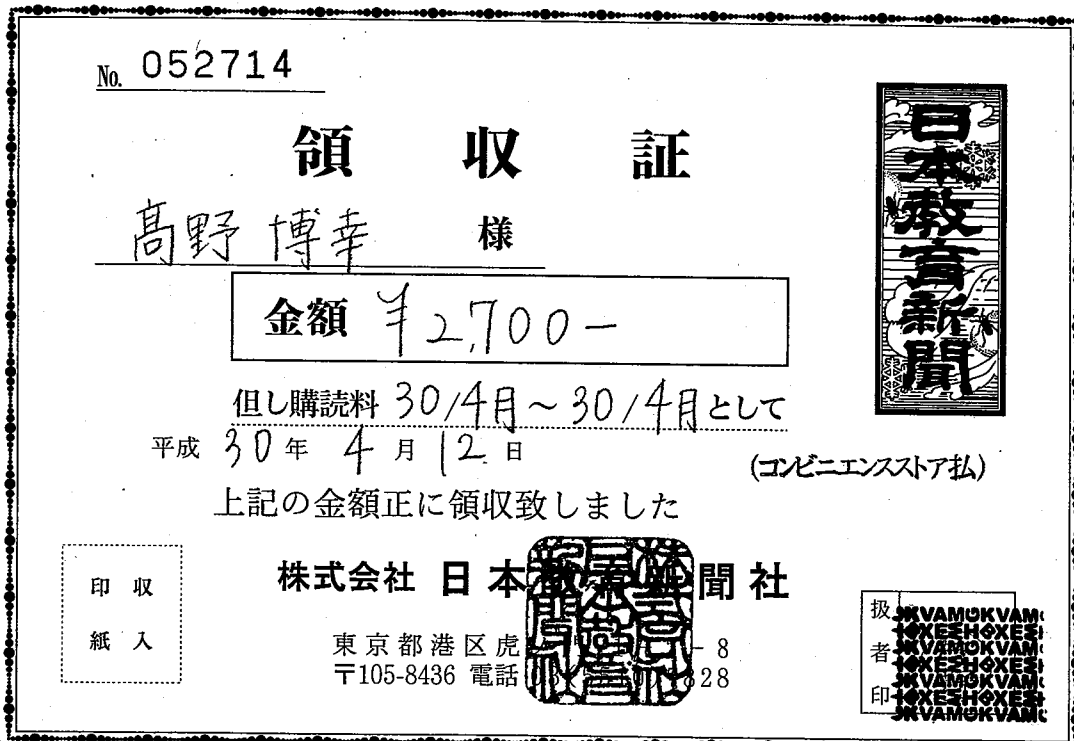 No. 052714
日本教育新聞
領収証
髙野 博幸 様
金額 ¥2,700-
但し購読料 30/4月～30/4月として
平成 30年 4月 12日
(コンビニエンスストア払)
上記の金額正に領収致しました
株式会社 日本教育新聞社
東京都港区虎 -8
〒105-8436 電話 828
収入印紙
扱者印